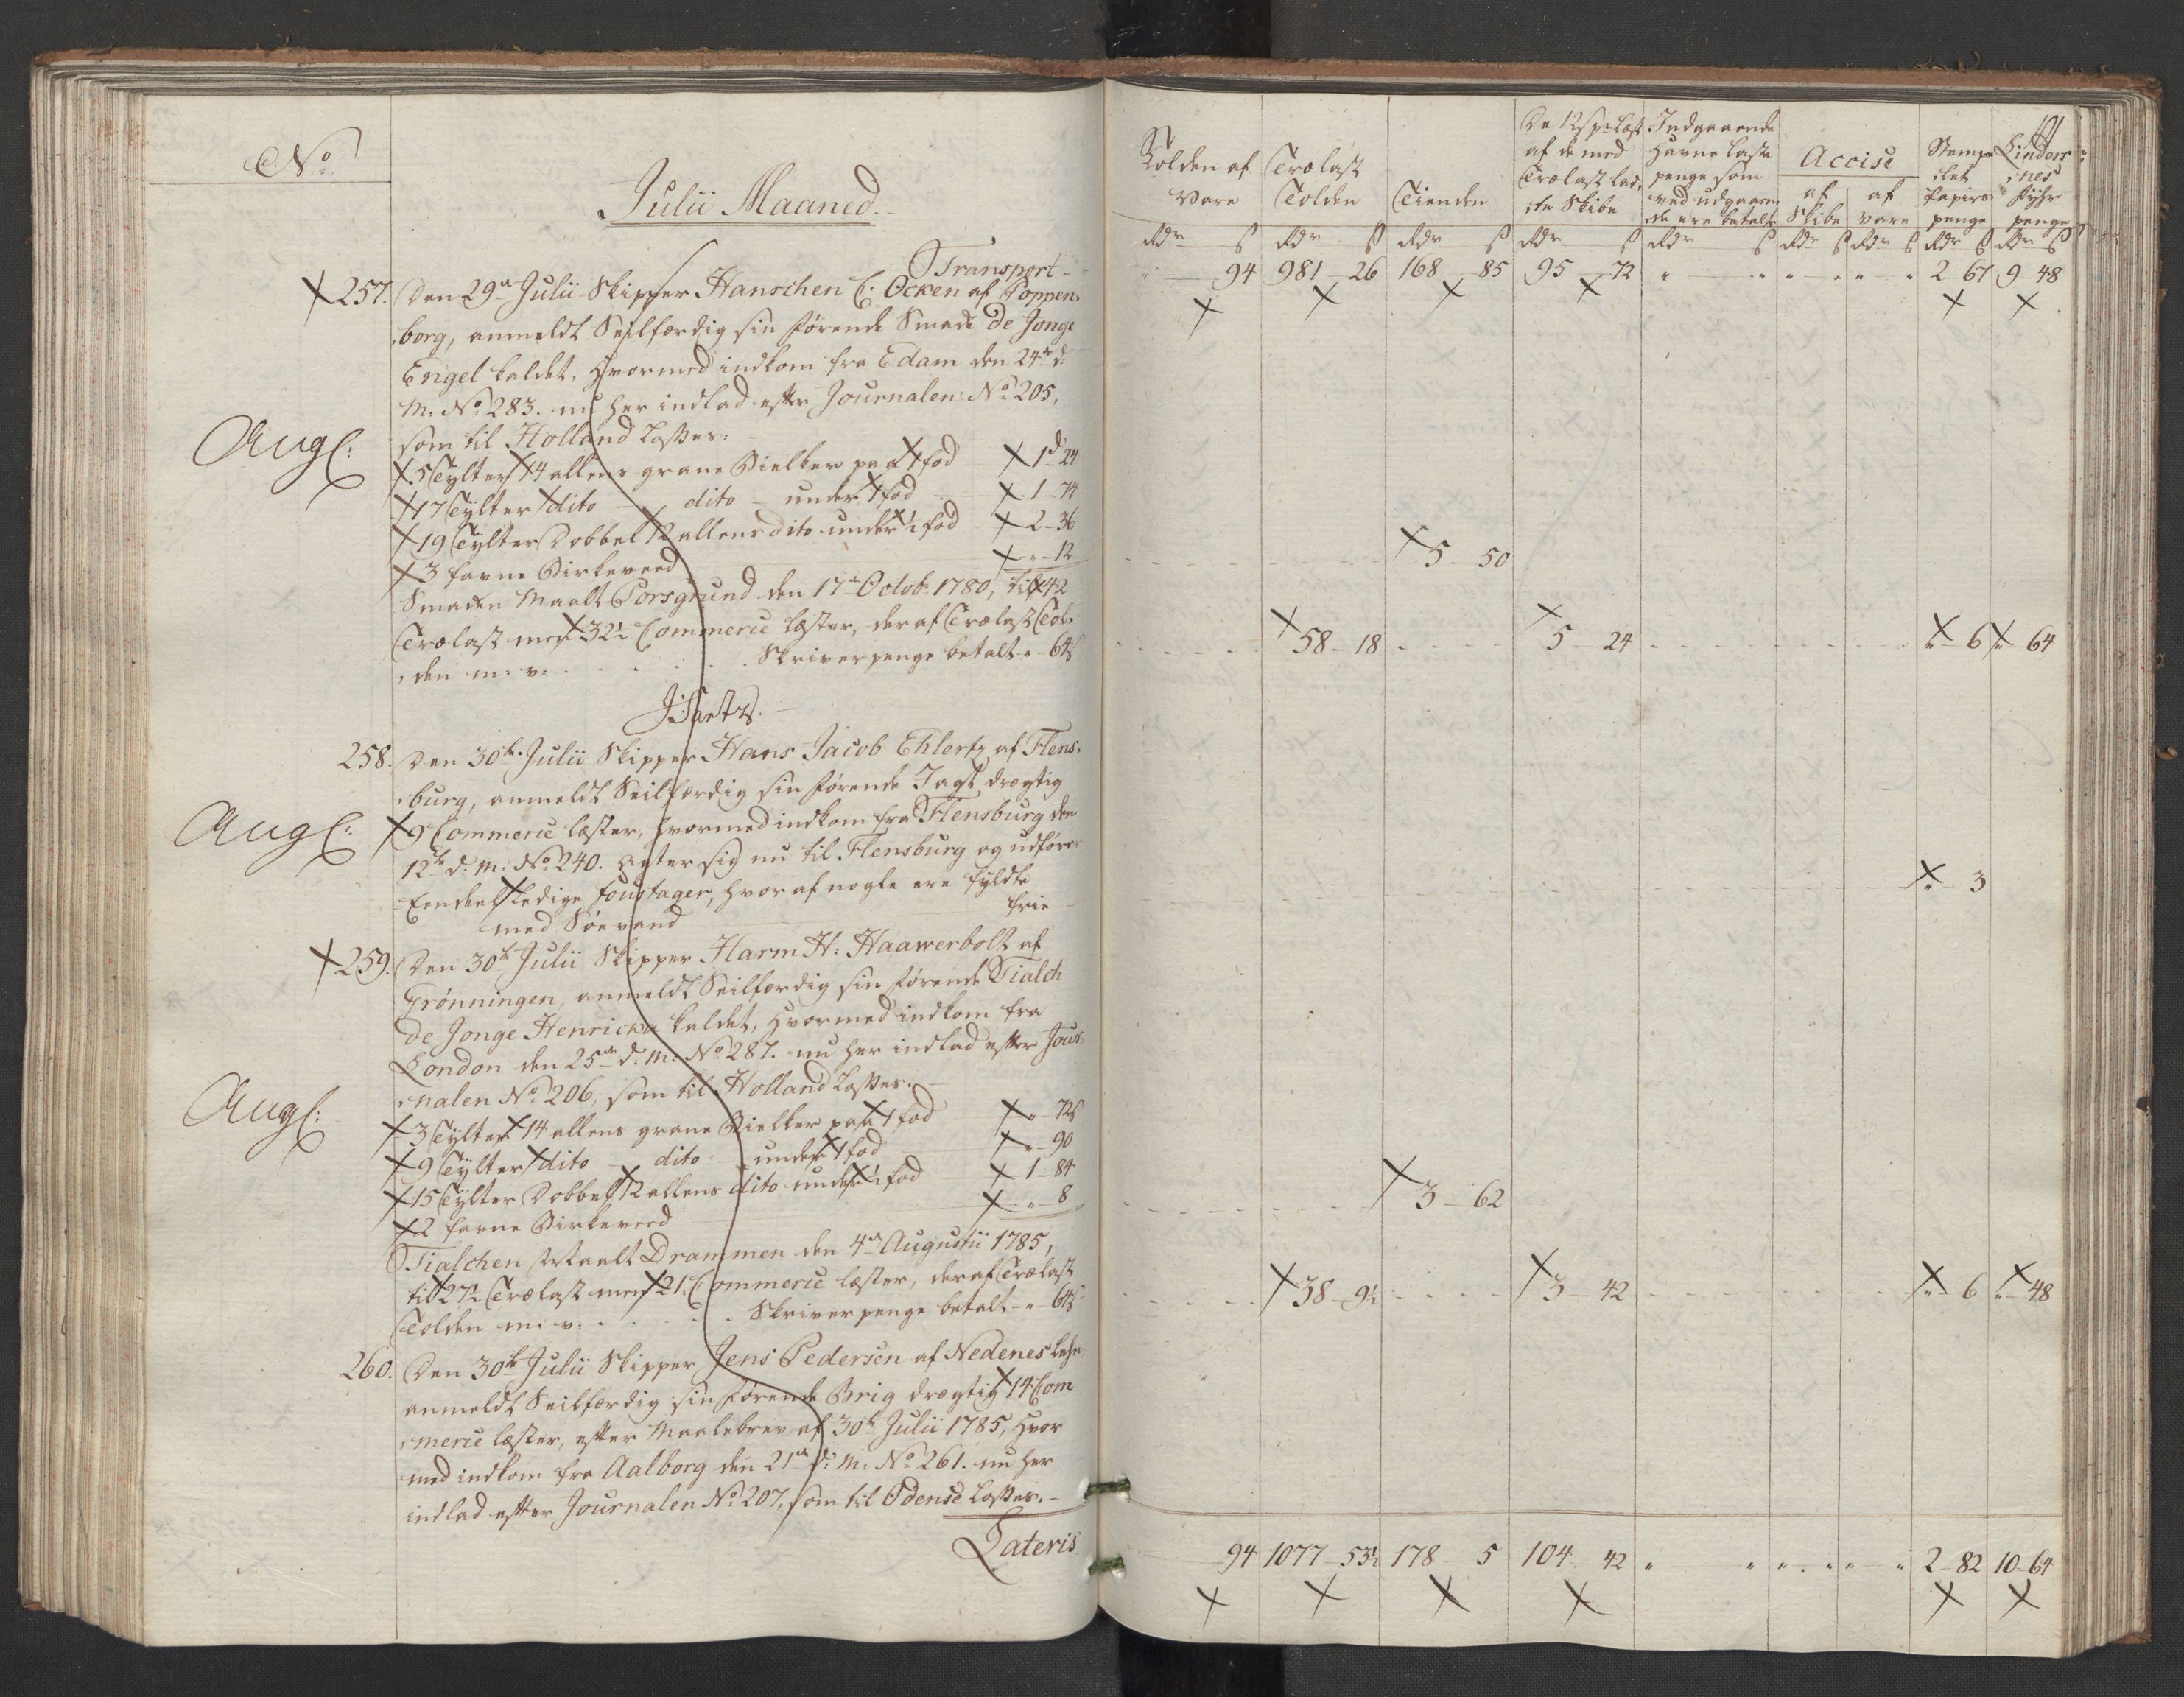 No
Julii Maaned.
Transport
257. Den 29de Julii Skipper Hanschen C: Ocken af Poppen-
borg, anmeldt Seilfærdig sin förende Smack De Jonge
Engel kaldet, hvormed indkom fra Edam den 24de d:
M: No 283. nu her indlad efter Journalen No 205,
som til Holland Losses.
Aug:
5 Tylter 14 allens grane Bielker paa 1 fod 1d 24
17 Tylter dito dito under 1 fod 1-74
19 Tylter Dobbel 12 allens dito under ½ fod 2-36
3 favne Birkeveed "-12
5-50
Smacken Maalt Porsgrund den 17de Octob: 1780, til 42
Trælast mod 32½ Commerce læster, deraf Trælast Tol-
den m: v: Skriverpenge betalt "-64s
58-18 5 24 "-6 "-64
J: Paars.
258. Den 30te Julii Skipper Hans Jacob Ehlertz af Flens-
burg, anmeldt Seilfærdig sin förende Jagt drægtig
Aug:
9 Commerce læster, hvormed indkom fra Flensburg den
12te d: M: No 240. agter sig nu til Flensburg og udförer
Eendeel ledige foustager, hvoraf nogle ere fyldte
med Söevand frie
"-3
259. Den 30te Julii Skipper Harm H: Haawerbolt af
Grönningen, anmeldt Seilfærdig sin förende Tialch
De Jonge Henricka kaldet, hvormed indkom fra
London den 25de d: M: No 287. nu her indlad efter Jour-
nalen No 206, som til Holland Losses.
Aug:
3 Tylter 14 allens grane Bielker paa 1 fod "-72s
9 Tylter dito dito under 1 fod "-90
15 Tylter Dobbel 12 allens dito under ½ fod 1-84
2 favne Birkeveed "-8
3-62
Tialchen Maalt Drammen den 4de Augustii 1785,
til 27½ Trælast mod 21 Commerce læster, deraf Trælast
Tolden m: v: Skriverpenge betalt "-64s
38-9½ 3-42 "-6 "-48
260. Den 30te Julii Skipper Jens Pedersen af Nedenes Lehn
anmeldt Seilfærdig sin förende Brig drægtig 14 Com-
merce læster, efter Maalebrev af 30te Julii 1785, hvor
med indkom fra Aalborg den 21de d: M: No 261. nu her
indlad efter Journalen No 207, som til Odense Losses.
Lateris
191
Tolden af
Vare
Trælast
Tolden
Tienden
De 12 s pr Læst
af de med
Trælast lad-
te Skibe
Indgaaende
Havne Laste
penge som
ved udgaaen-
de ere betalt
Accise
af
Skibe
af
Vare
Stemp-
let
Papirs
penge
Linderr-
nes
Fyhr
penge
Rdr s Rdr s Rdr s Rdr s Rdr s Rdr s Rdr s Rdr s Rdr s
" 94 981-26 168-85 95-72 " " " " " " 2-67 9-48
94 1077-53½ 178 5 104 42 " " " " " " 2-82 10-64